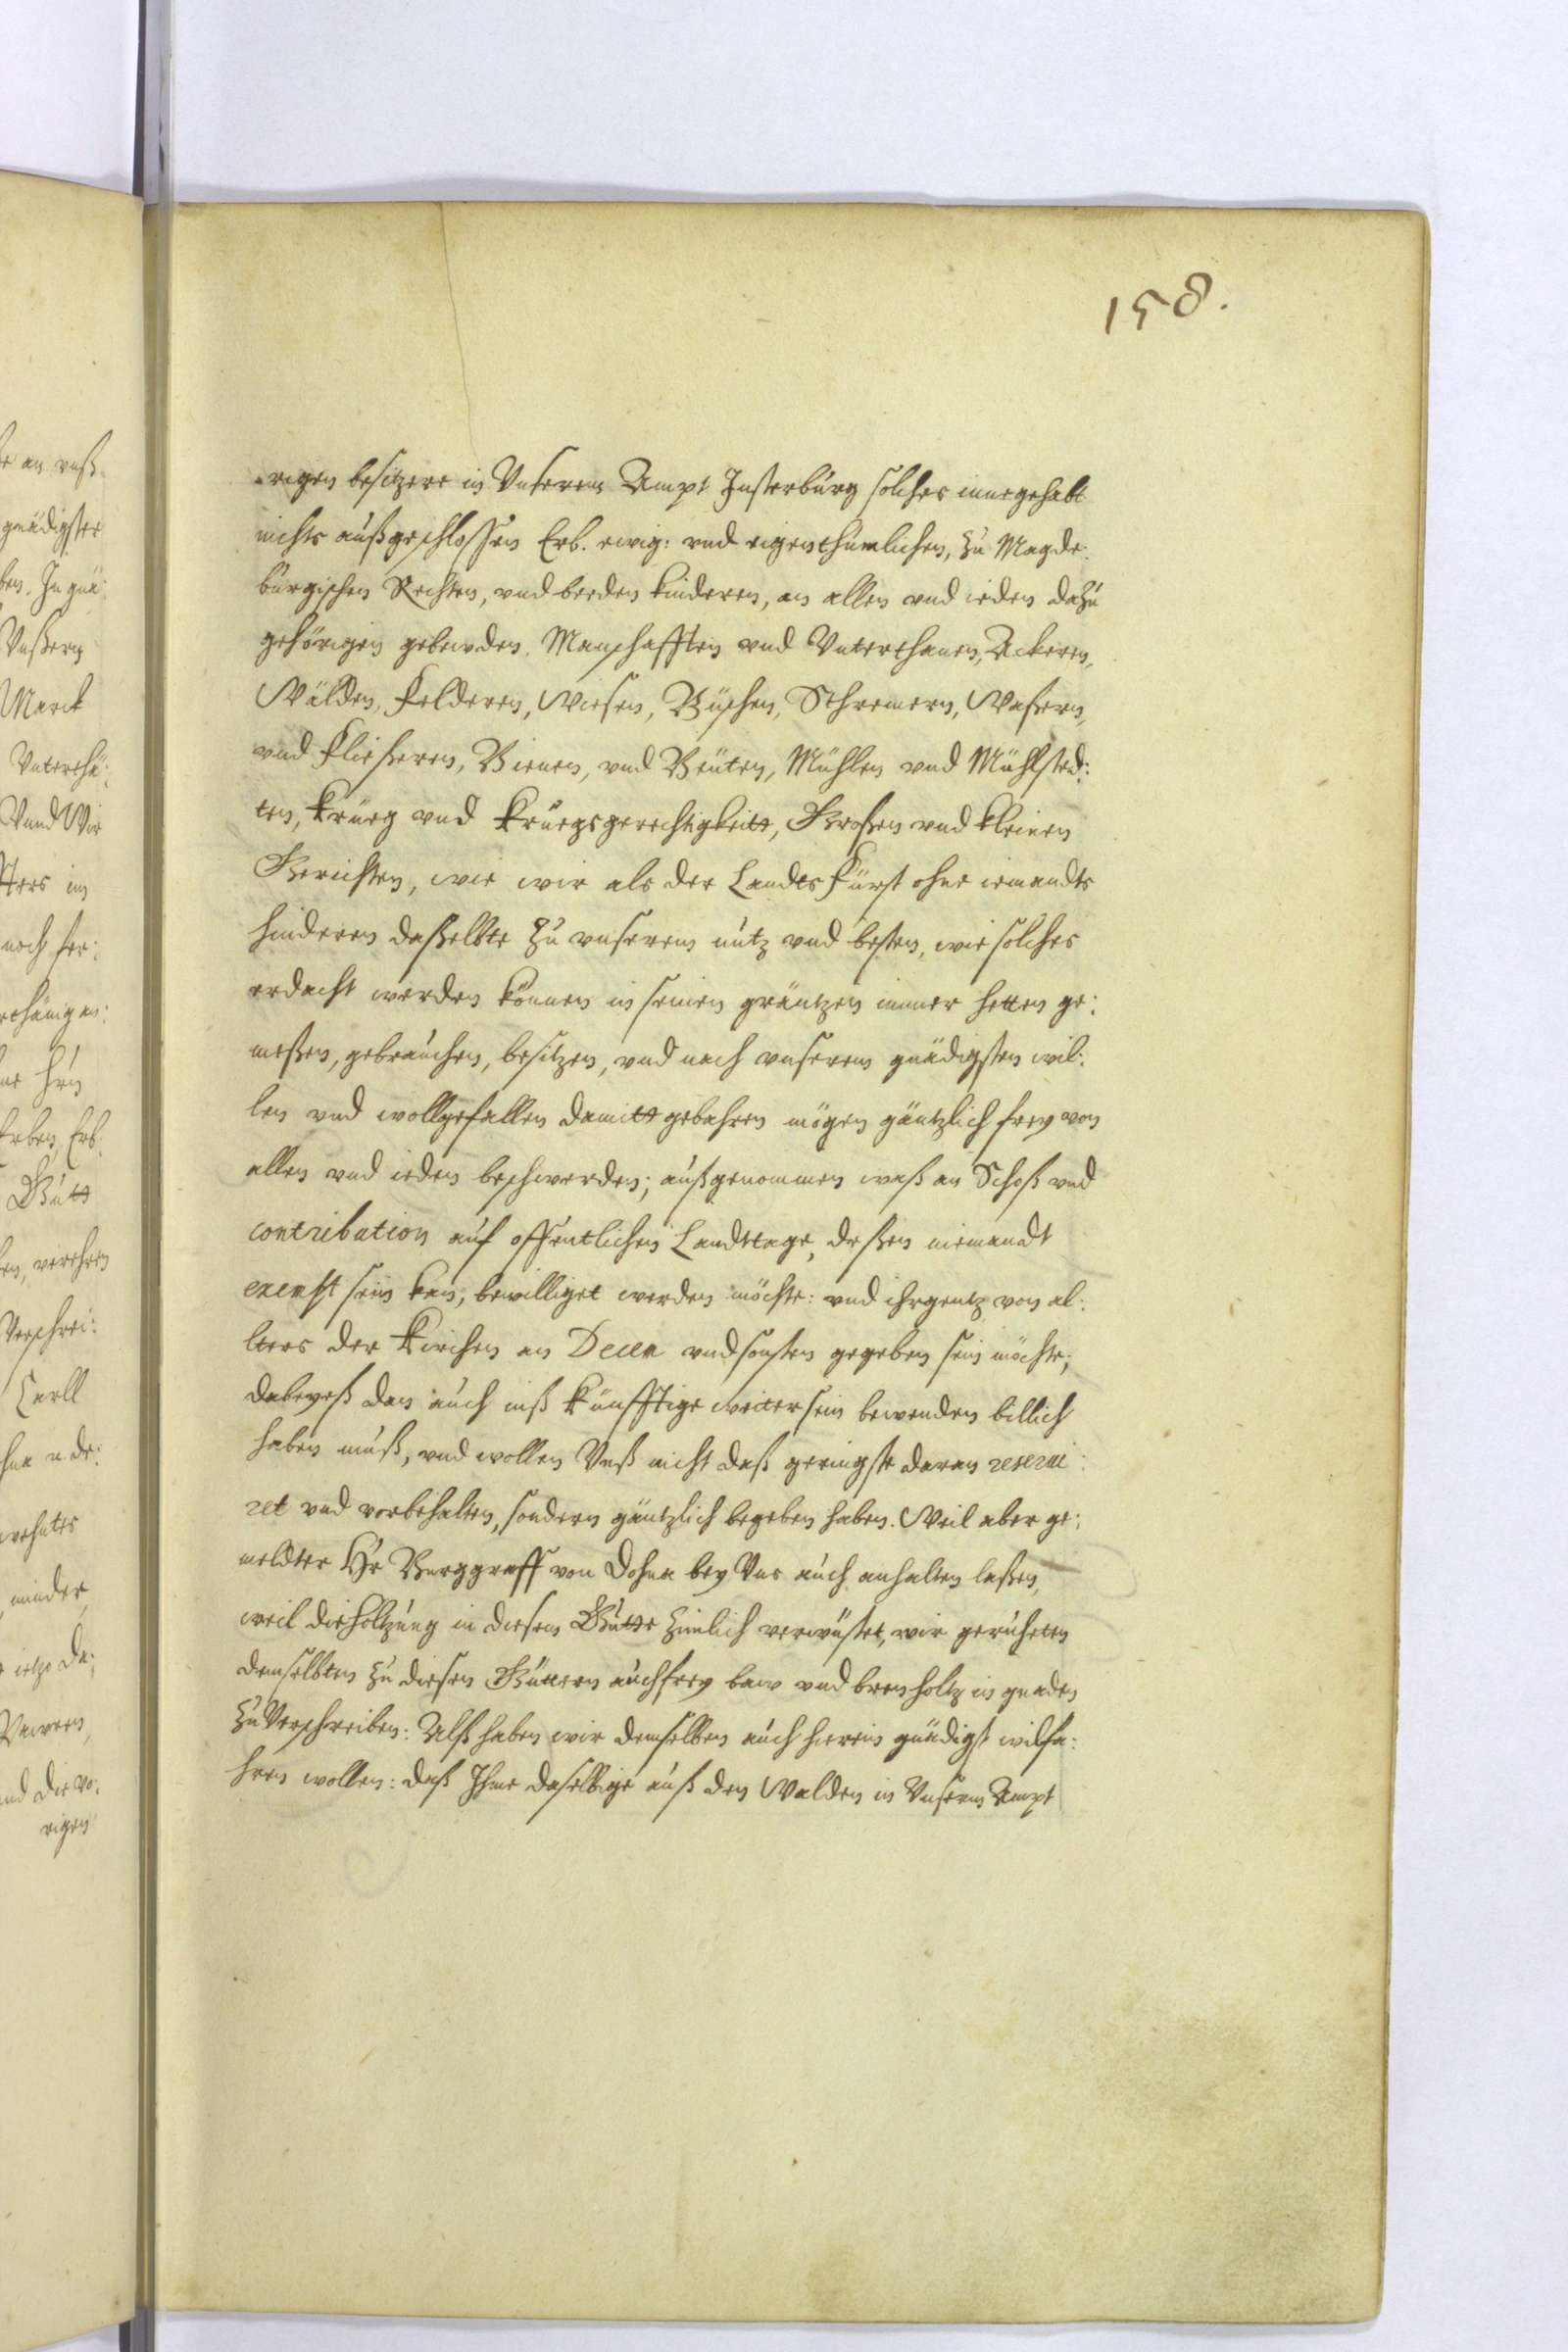 158.
rigen besitzere in Vnserem Ampt Insterburg solches innegehabt
nichts außgeschlossen Erb. ewig: vnd eigenthumlichen, zu Magde:
burgischen Rechten, vnd beeden kinderen, an allen vnd ieden dazu
gehörigen gebewden, Manschafften vnd Vnterthanen, Ackeren,
Wälden, Felderen, Wiesen, Büschen, Strewern, Waßern,
vnd Fließeren, Bienen, vnd Beuten, Mühlen vnd Mühlsted:
ten, Krueg vnd Kruegsgerechtigkeitt, Großen vnd kleinen
Gerichten, wie wir als der Landts Fürst ohne iemandts
hinderen daßelbte zu vnserem nutz vnd besten, wie solches
erdacht werden können in seinen gräntzen immer hetten ge:
nießen, gebrauchen, besitzen, vnd nach vnserem gnädigsten wil:
len vnd wollgefallen damitt gebahren mögen gäntzlich frey von
allen vnd ieden beschwerden; außgenommen waß an Schoß vnd
contribution auf offentlichen Landttage, deßen niemandt
exempt sein kan, bewilliget werden möchte: vnd ihrgentz von al:
ters der Kirchen an Decem vnd sonsten gegeben sein möchte;
dabey eß dan auch inß künfftige weiter sein bewenden billich
haben muß, vnd wollen Vnß nicht daß geringste daran reservi:
ret vnd vorbehalten, sondern gäntzlich begeben haben. Weil aber ge:
meldter Hr Burggraff von Dohna bey Vns auch anhalten laßen,
weil die holtzung in diesem Gutte zimlich verwüstet, wir geruheten
demselbten zu diesen Gütteren auch frey baw vnd bren holtz in gnaden
zu Verschreiben: Alß haben wir demselben auch hierin gnädigst wilfa:
hren wollen: daß Ihme daselbige auß den Walden in Vnserm Ampt